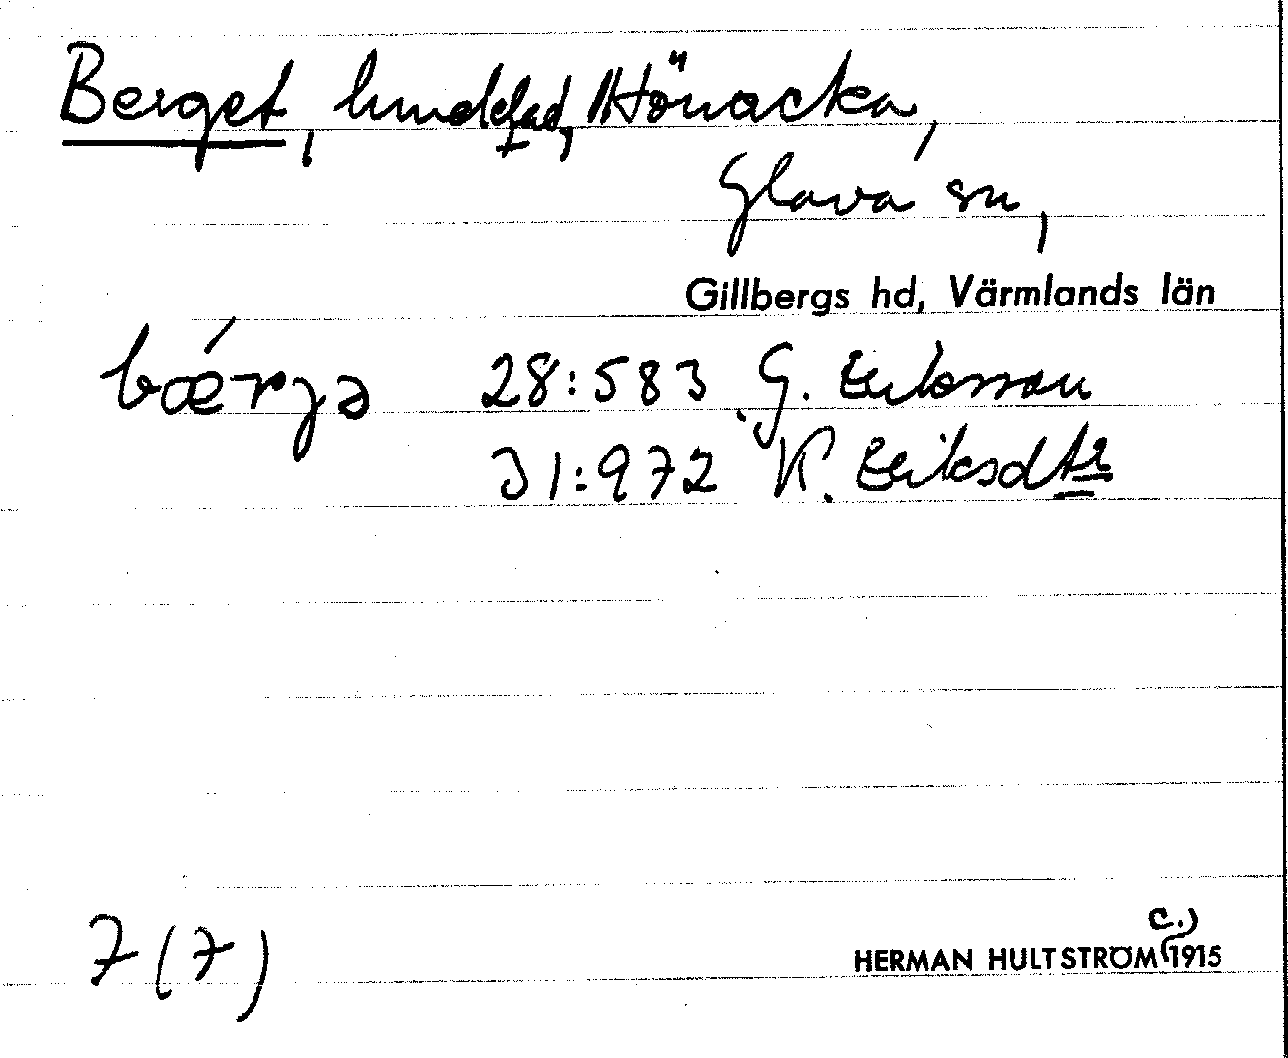 Berget, Hönacka,
Glava sn,
Gillbergs hd, Värmlands län
bǽrjə 28:583 G. Eriksson
31:972 K. Eriksdtr
7(7)
c.)
HERMAN HULTSTRÖM 1915